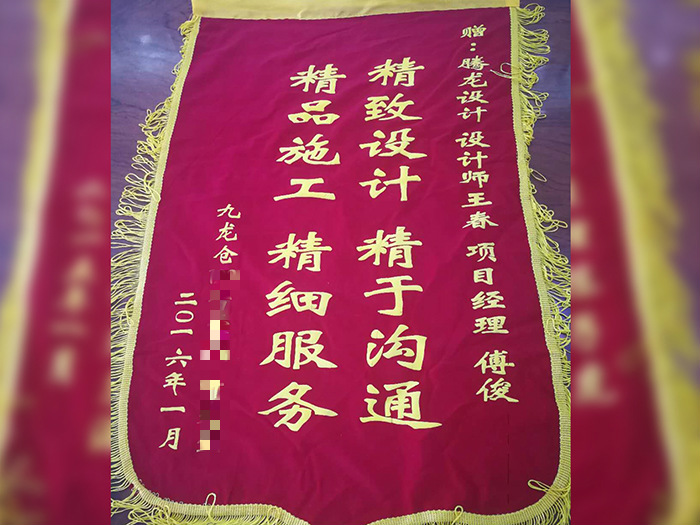 赠：腾龙设计 设计师王春 项目经理 傅俊
精致设计 精于沟通
精品施工 精细服务
九龙仓
二〇一六年一月